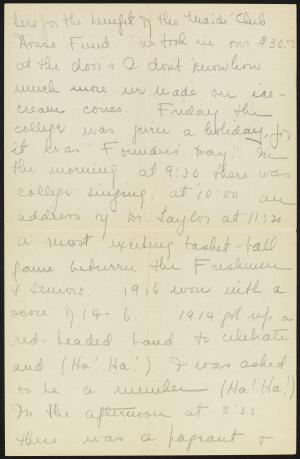 here for the benefit of the Maids' Club
House Fund. We took in over $30.00
at the door & I don't know how
much more we made on ice-
cream cones. Friday the
college was given a holiday, for
it was "Founder's Day." In
the morning at 9:30 there was
college singing, at 10:00 an
address by Dr. Taylor at 11:20
a most exciting basket-ball
game between the Freshmen
& Seniors. 1916 won with a
score of 14-6. 1914 got up a
red-headed band to celebrate
and (Ha! Ha!) I was asked
to be a member (Ha! Ha!)
In the afternoon at 3:30
there was a pageant &